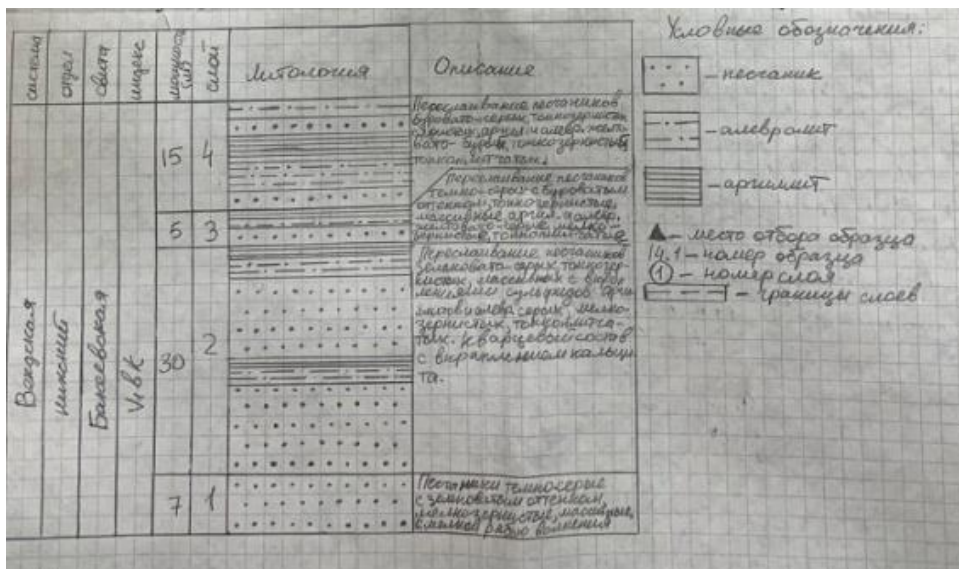 система
отдел
свита
индекс
мощность (м)
слой
Литология
Описание
Вендская
нижний
Бакеевская
V₁bk
15
4
Переслаивание песчаников
буровато-серых, тонкозернистых
аргил. и алевр. желто-
вато-бурых, тонкозернистых
тонкоплитчатых.
5
3
Переслаивание песчаников
темно-серых с буроватым
оттенком, тонкозернистые,
массивные аргил. и алевр.
желтовато-серые, мелко-
зернистые, тонкоплитчатые
30
2
Переслаивание песчаников
зеленовато-серых, тонкозер-
нистых, массивных с вкрап
лениями сульфидов. Арги
литов и алевр. серых, мелко-
зернистых, тонкоплитча-
тых. Кварцевый состав
с вкраплением кальци
та.
7
1
Песчаники темносерые
с оттенком,
мелкозернистые, массивные,
с мелкой рябью волнения
Условные обозначения:
– песчаник
– алевролит
– аргиллит
– место отбора образца
14.1 – номер образца
1 – номер слоя
– границы слоев